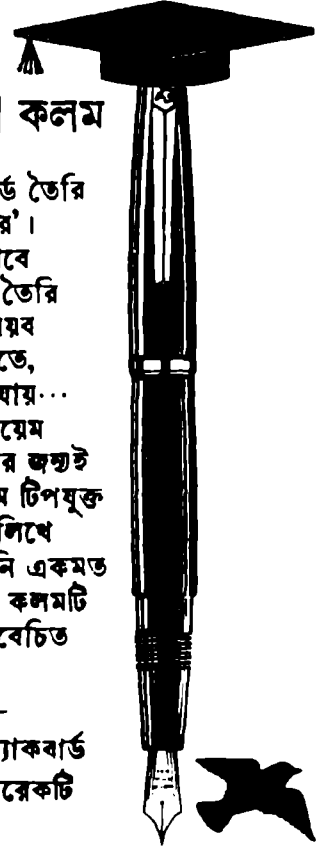 কলম
র্ড তৈরি
র’।
বে
তৈরি
য়ব
তে,
যায়…
য়েম
র জন্যই
ম টিপযুক্ত
লিখে
নি একমত
কলমটি
বেচিত
্যাকবার্ড
রেকটি